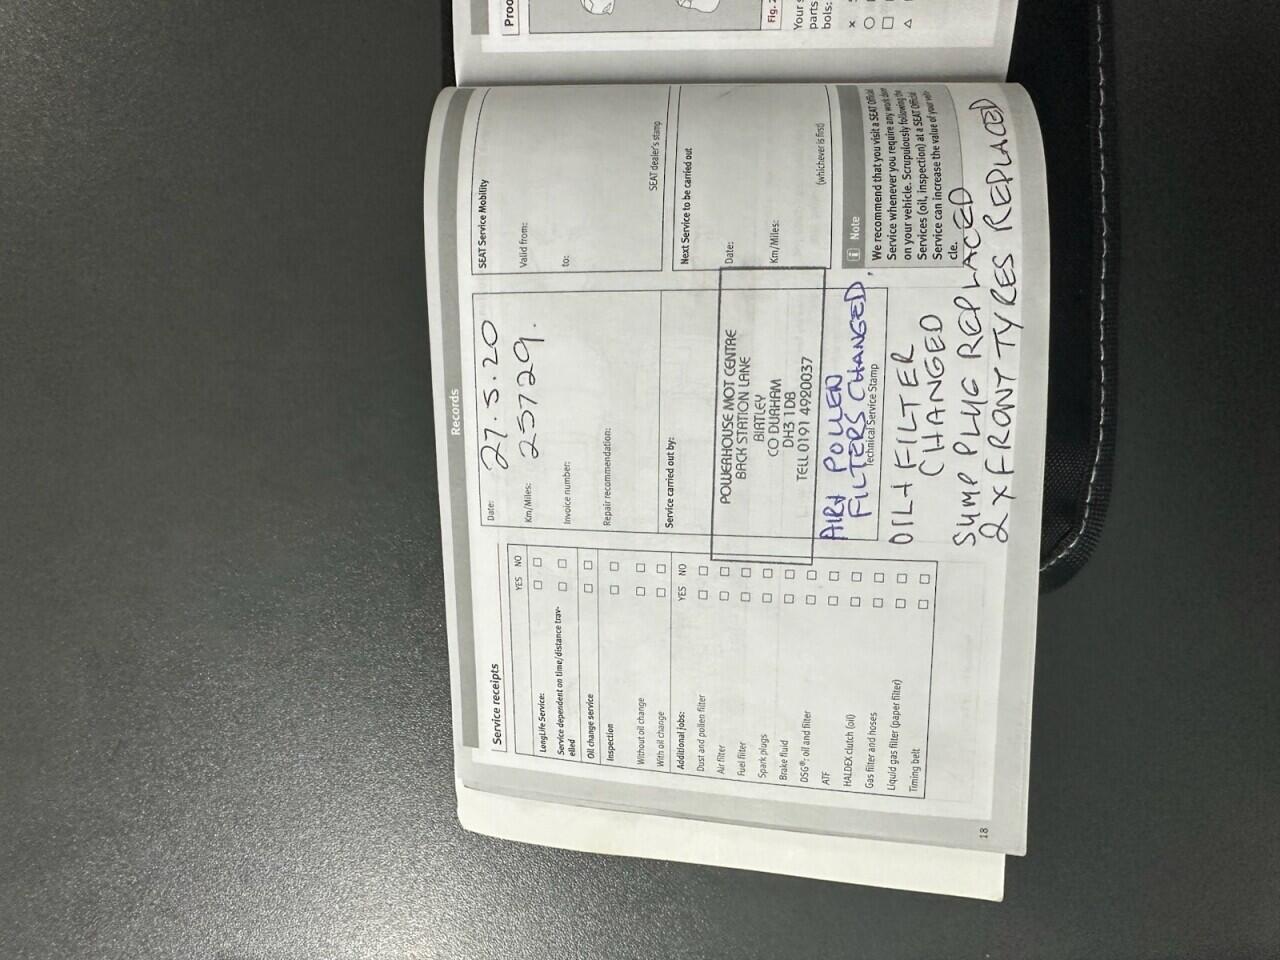 Records
Service receipts
YES NO
LongLife Service:
Service dependent on time/distance trav-
elled
Oil change service
Inspection
Without oil change
With oil change
Additional jobs: YES NO
Dust and pollen filter
Air filter
Fuel filter
Spark plugs
Brake fluid
DSG®: oil and filter
ATF
HALDEX clutch (oil)
Gas filter and hoses
Liquid gas filter (paper filter)
Timing belt
18
Date: 27.5.20
Km/Miles: 25729.
Invoice number:
Repair recommendation:
Service carried out by:
POWERHOUSE MOT CENTRE
BACK STATION LANE
BIRTLEY
CO DURHAM
DH3 1DB
TELL 0191 4920037
AIR+ POLLEN
FILTERS CHANGED.
Technical Service Stamp
OIL+FILTER
CHANGED
SUMP PLUG REPLACED
2 X FRONT TYRES REPLACED
SEAT Service Mobility
Valid from:
to:
SEAT dealer's stamp
Next Service to be carried out
Date:
Km/Miles:
(whichever is first)
i Note
We recommend that you visit a SEAT Official
Service whenever you require any work done
on your vehicle. Scrupulously following the
Services (oil, inspection) at a SEAT Official
Service can increase the value of your vehi-
cle.
Fig. 2
Your
parts
bols: